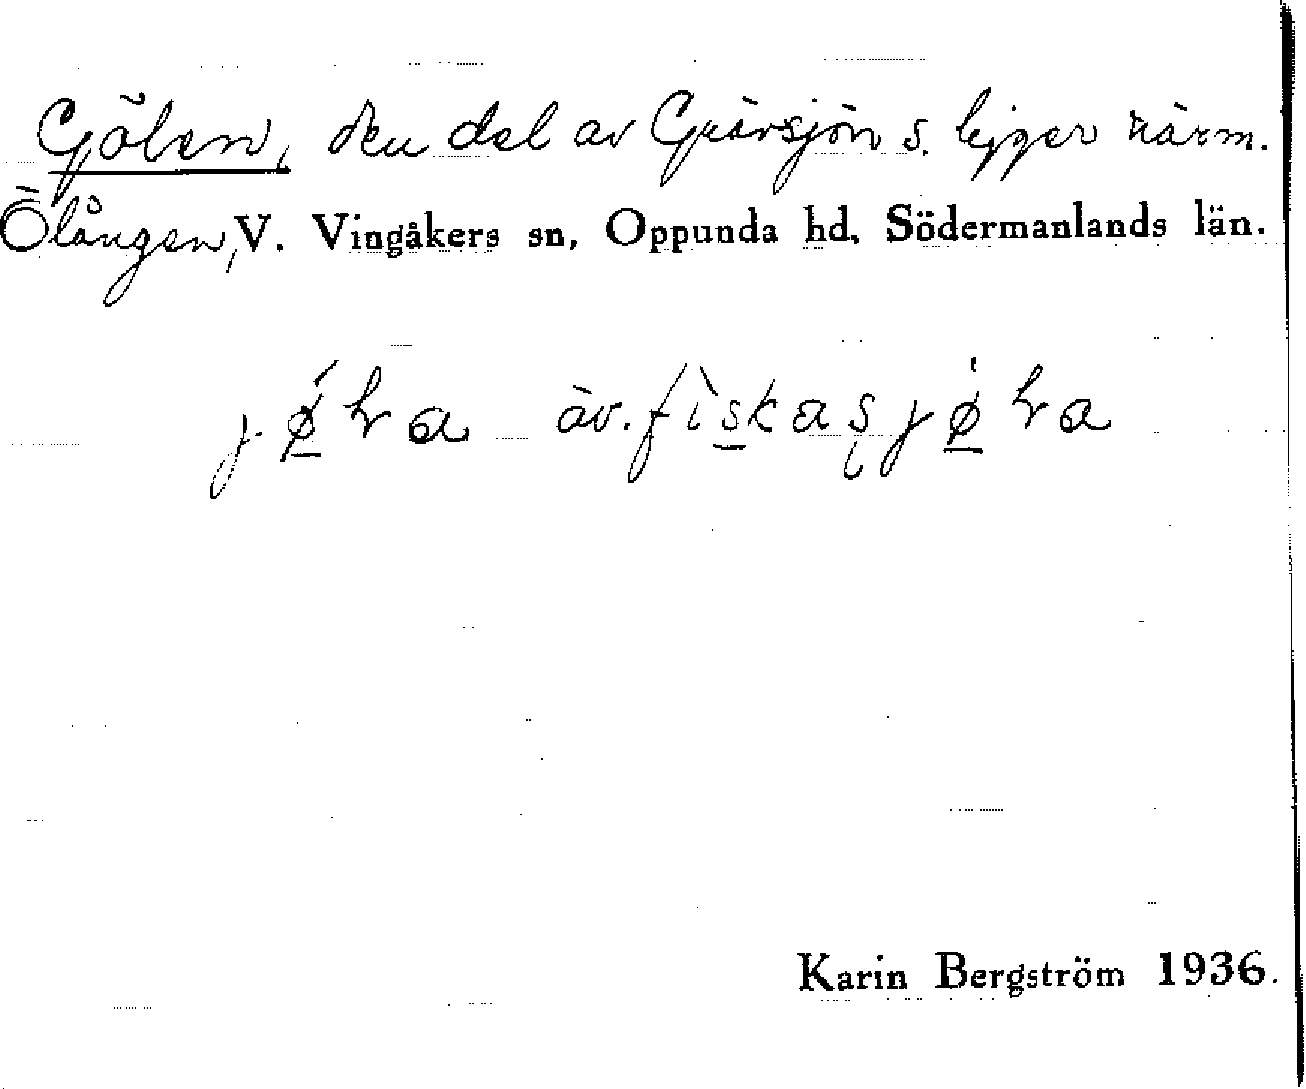 Gölen, den del av Gvärsjön s. ligger närm.
Ölången, V. Vingåkers sn, Oppunda hd, Södermanlands län.
äv.
Karin Bergström 1936.